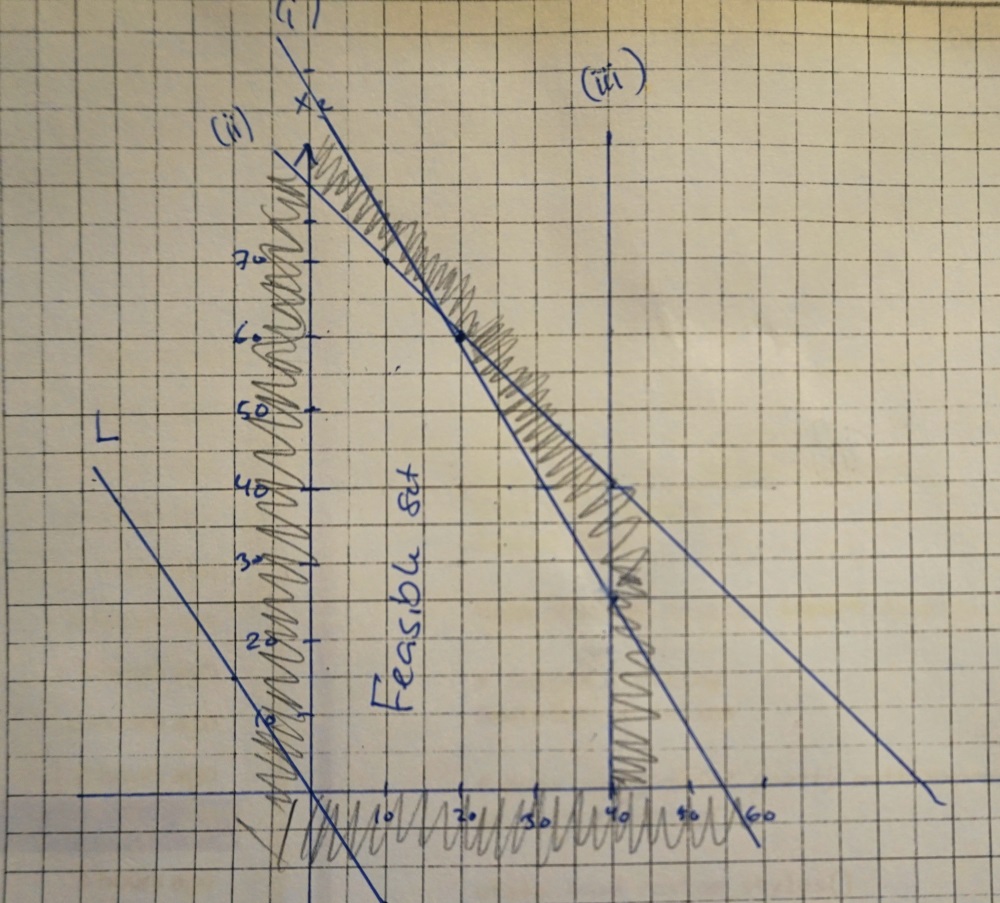 (i)
(iii)
(ii)
70
60
50
40
30
20
Feasible set
10 20 30 40 50 60